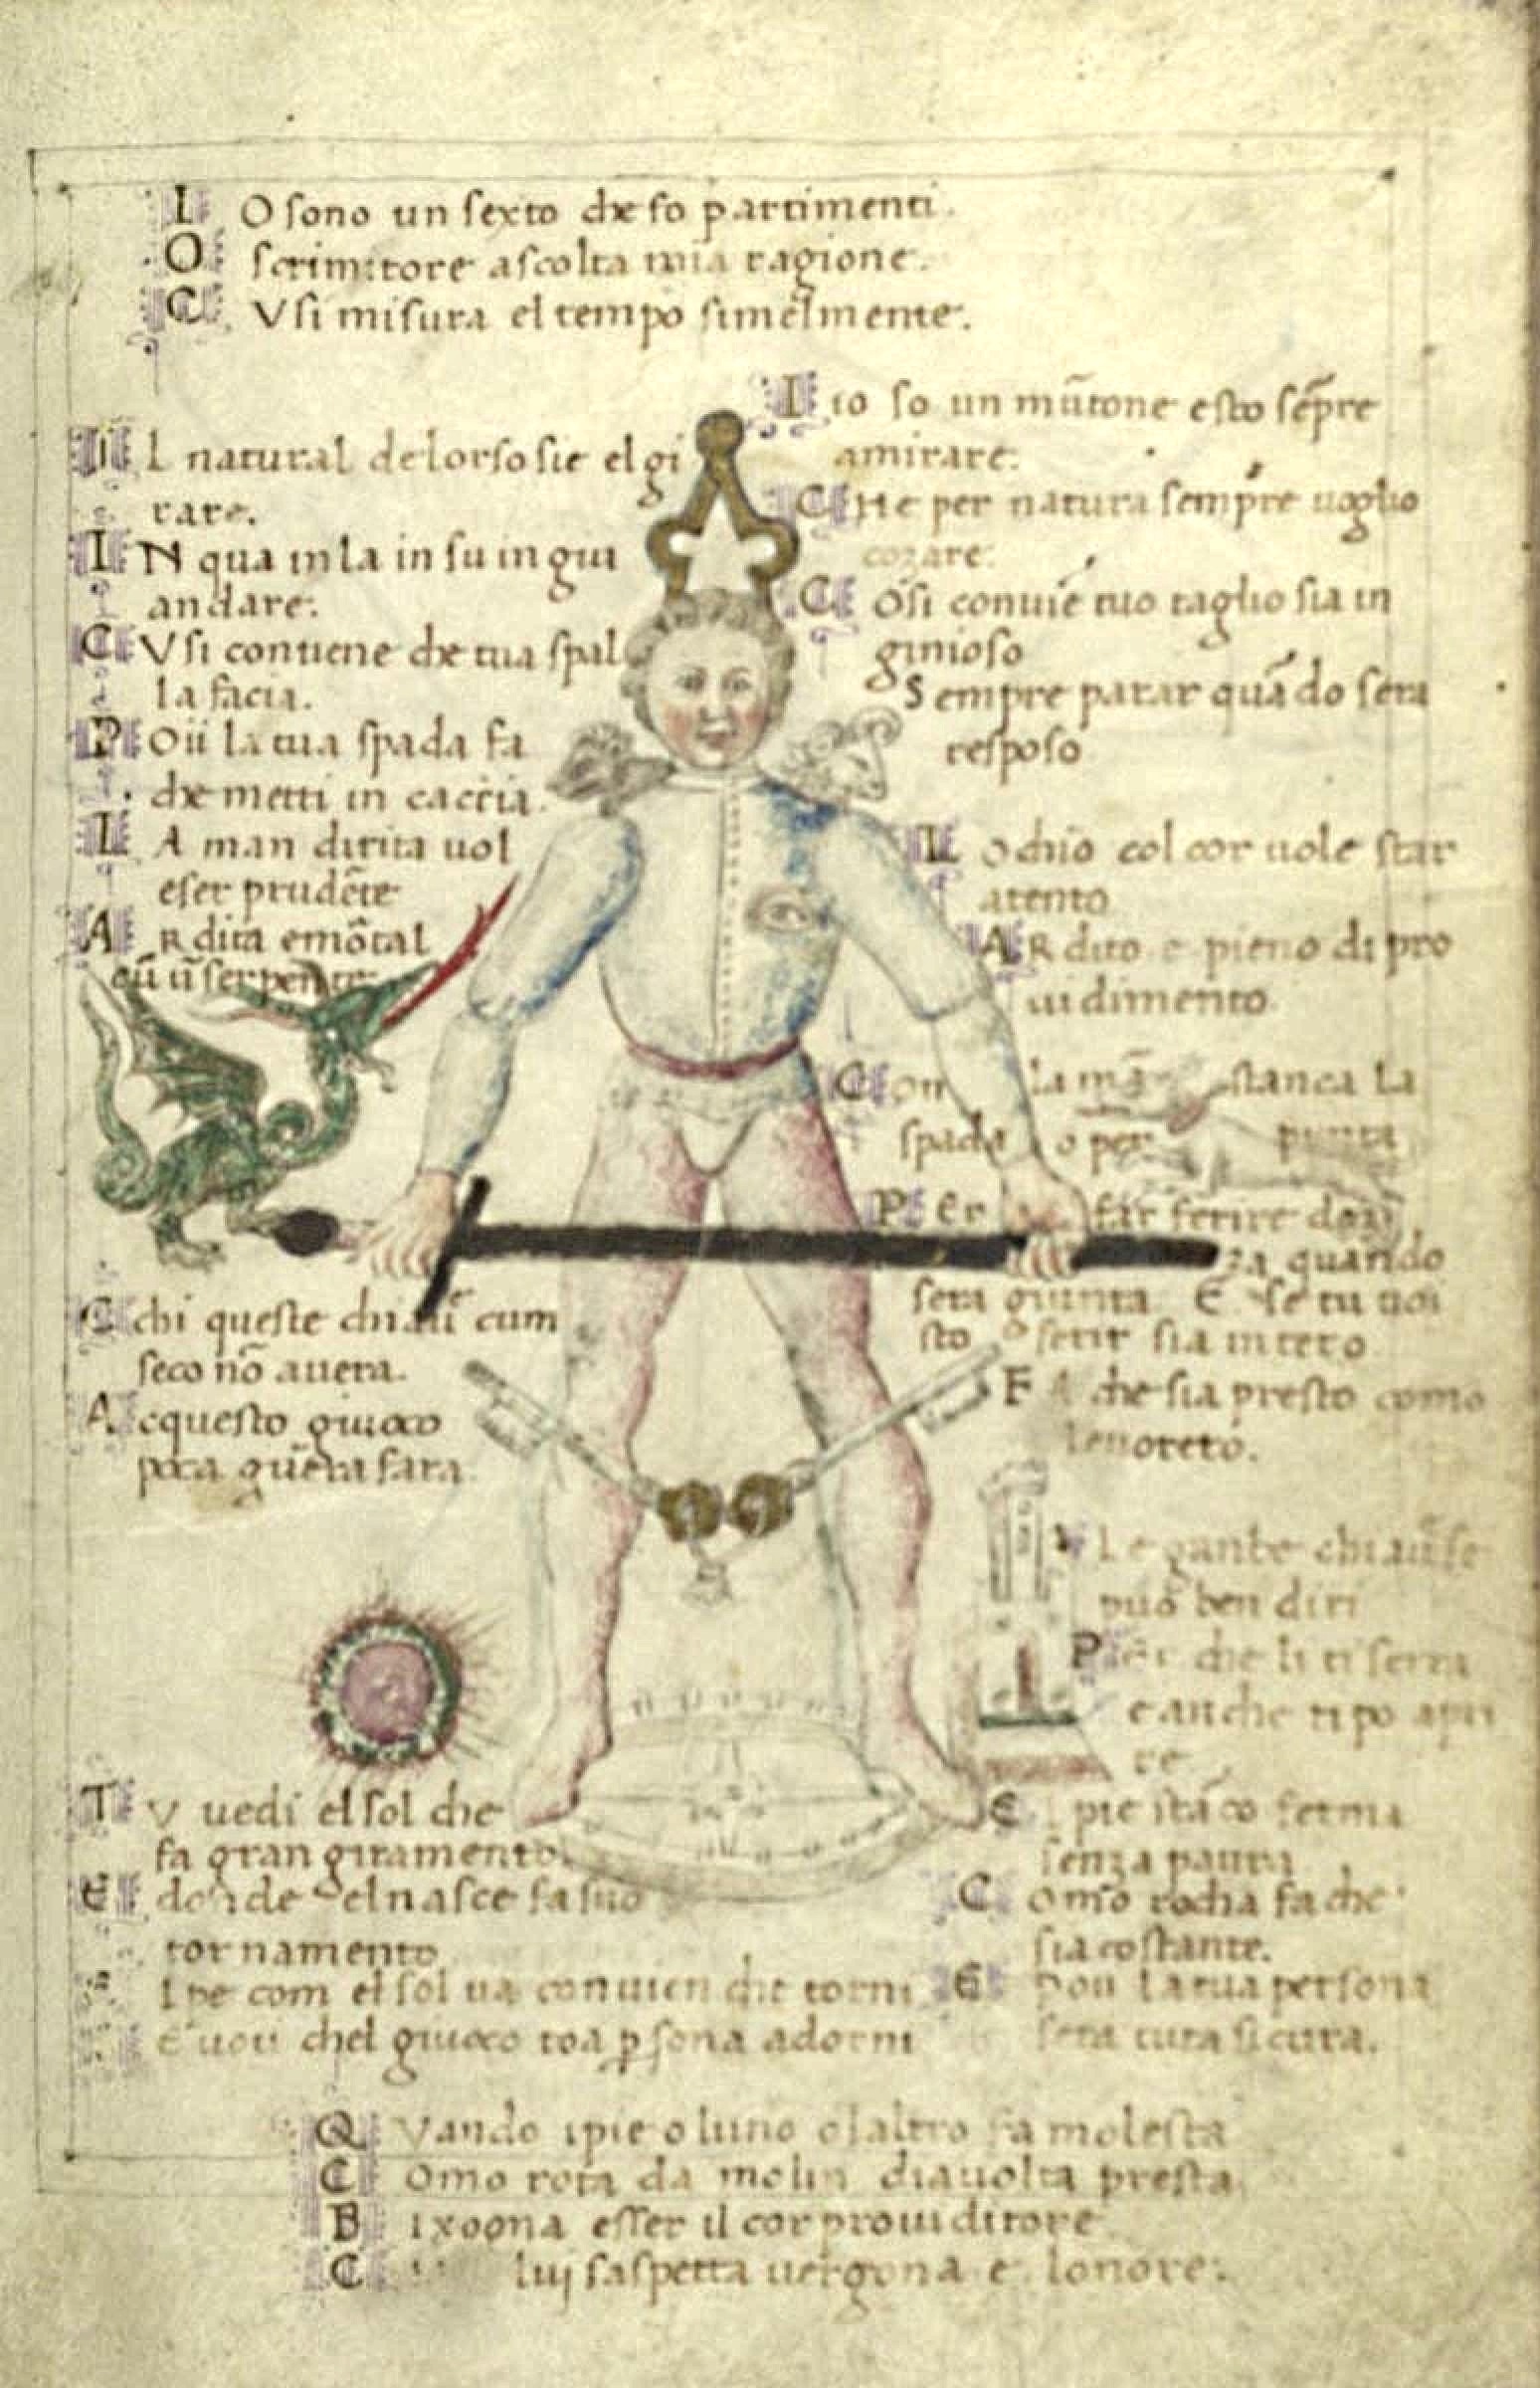 I O sono un sexto che fo partimenti.
O scrimitore ascolta mia ragione.
C Vsi misura el tempo simelmente.
I L natural delorso sie el gi
rare.
I N qua in la in su in giu
andare.
C Vsi contiene che tua spal
la facia.
P Oii la tua spada fa
che metti in caccia.
L A man dirita uol
eser prudēte
A R dita e mōtal
cū ū serpente
C chi queste chiaui cum
seco nō auera.
A cquesto giuoco
poca guera fara.
T V uedi el sol che
fa gran giramento.
E donde el nasce fa suo
tornamento
I pe com el sol ua conuien che torni
E uoii chel giuoco toa ꝑsona adorni
I io so un mūtone e sto sēpre
amirare.
C He per natura sempre uoglio
cozare.
C Osi conuiē tuo taglio sia in
ginioso
Sempre parar quādo sera
resposo
L ochio col cor uole star
atento
A R dito e pieno di pro
uidimento
C on la mā stanca la
spada o per punta
P Er far ferire danza quando
sera giunta E se tu uoi
sto ferir sia intero
F A che sia presto como
leuoreto.
Le gambe chiaui se
puo ben diri
P er che li ti serra
e anche ti po apri
re
E I pie sta co ferma
senza paura
C omo rocha fa che
sia costante.
E poii la tua persona
sera tuta sicura.
Q Vando i pie o luno o laltro fa molesta
C Omo rota da molin diauolta presta
B ixogna esser il cor prouiditore
C lui saspetta uergona e lonore.